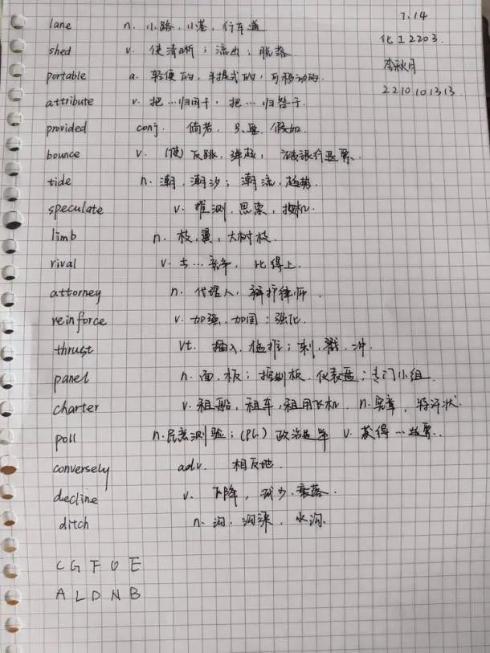 7.14
化工2203
李秋月
2210101313
lane n. 小路，小巷，行车道
shed v. 使清晰；流出；脱落
portable a. 轻便的，手提式的，可移动的
attribute v. 把…归因于，把…归咎于
provided conj. 倘若，只要，假如
bounce v. (使)反跳，弹起，
tide n. 潮，潮汐；潮流，趋势
speculate v. 推测，思索，投机
limb n. 肢，翼，大树枝
rival v. 与…竞争，比得上
attorney n. 代理人，辩护律师
reinforce v. 加强，加固；强化
thrust vt. 插入，猛推；刺，戳，冲
panel n. 面，板；控制板，仪表盘；专门小组
charter v. 租船，租车，租用飞机 n. 宪章，特许状
poll n. 民意测验；(pl.) 政治选举 v. 获得…选票
conversely adv. 相反地
decline v. 下降，减少，衰落
ditch n. 沟，沟渠，水沟
C G F O E
A L D N B